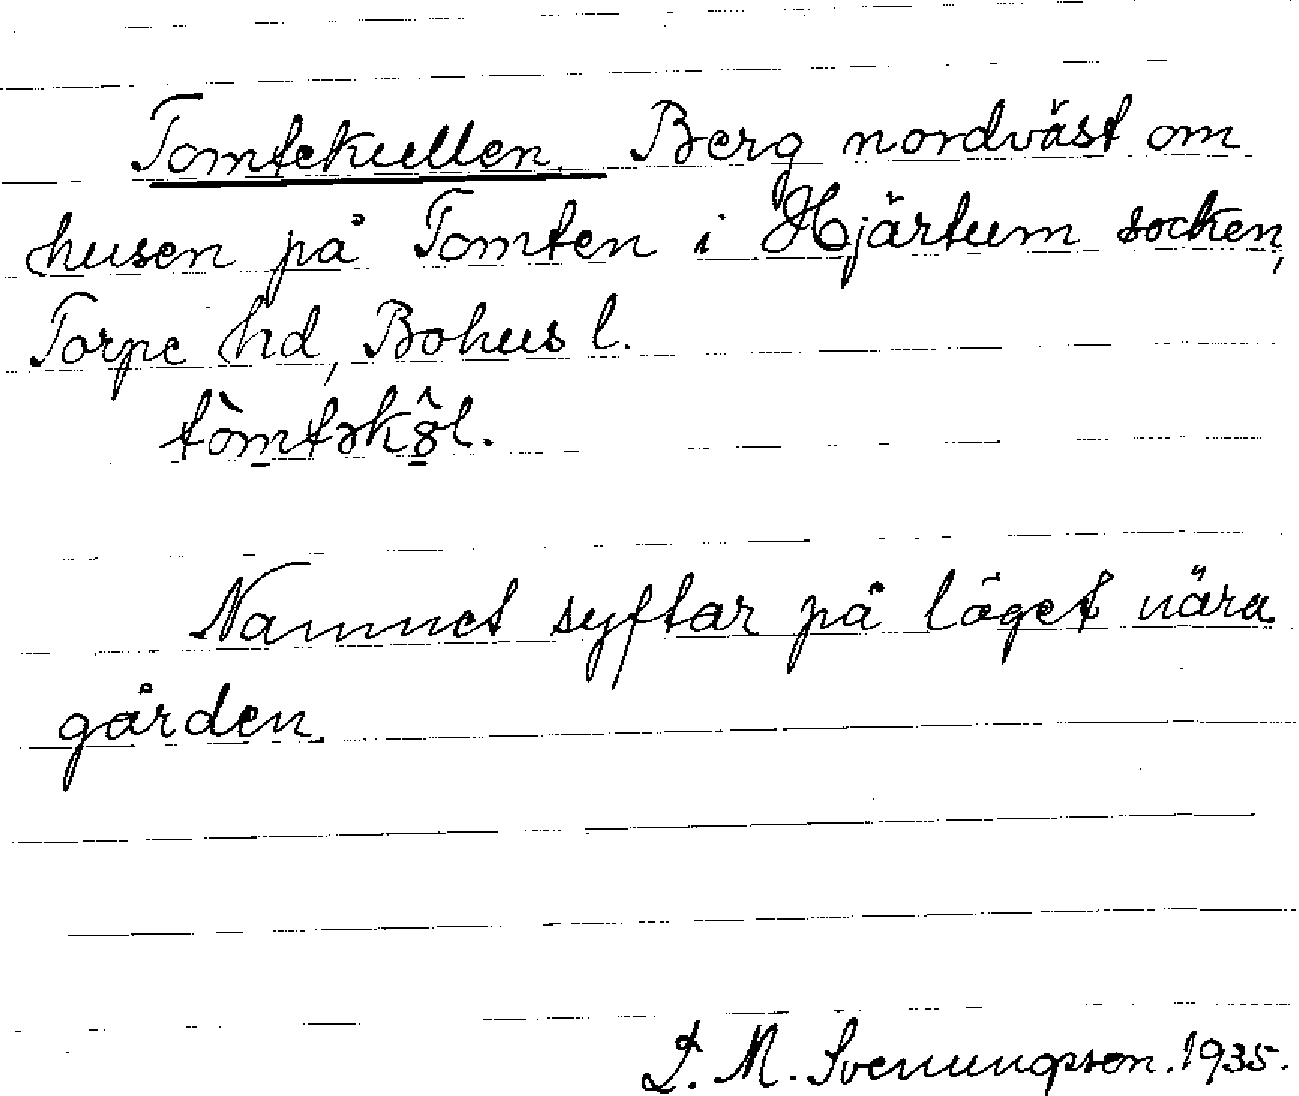 Tomtekullen. Berg nordväst om
husen på Tomten i Hjärtum socken,
Torpe hd, Bohus l.
Namnet syftar på läget nära
gården.
L. M. Svenungsson. 1935.